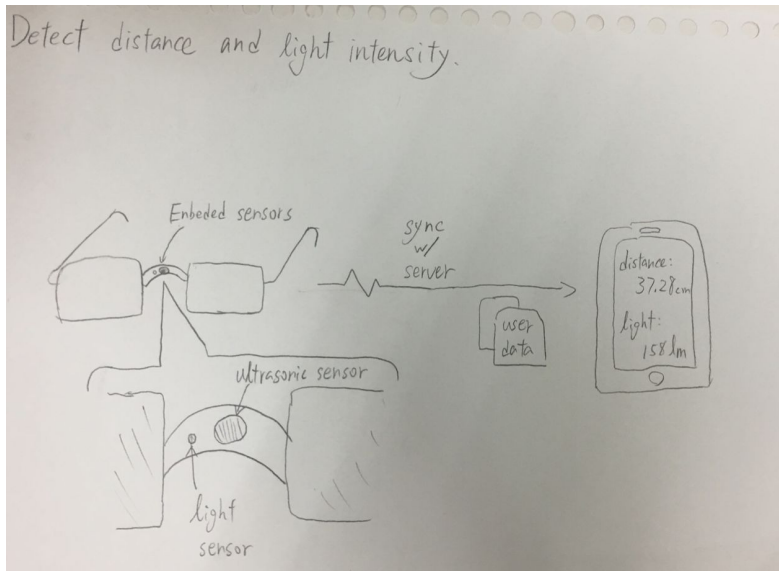 Detect distance and light intensity.
Enbeded sensors
sync
w/
server
user
data
distance:
37.28cm
light:
158 lm
ultrasonic sensor
light
sensor